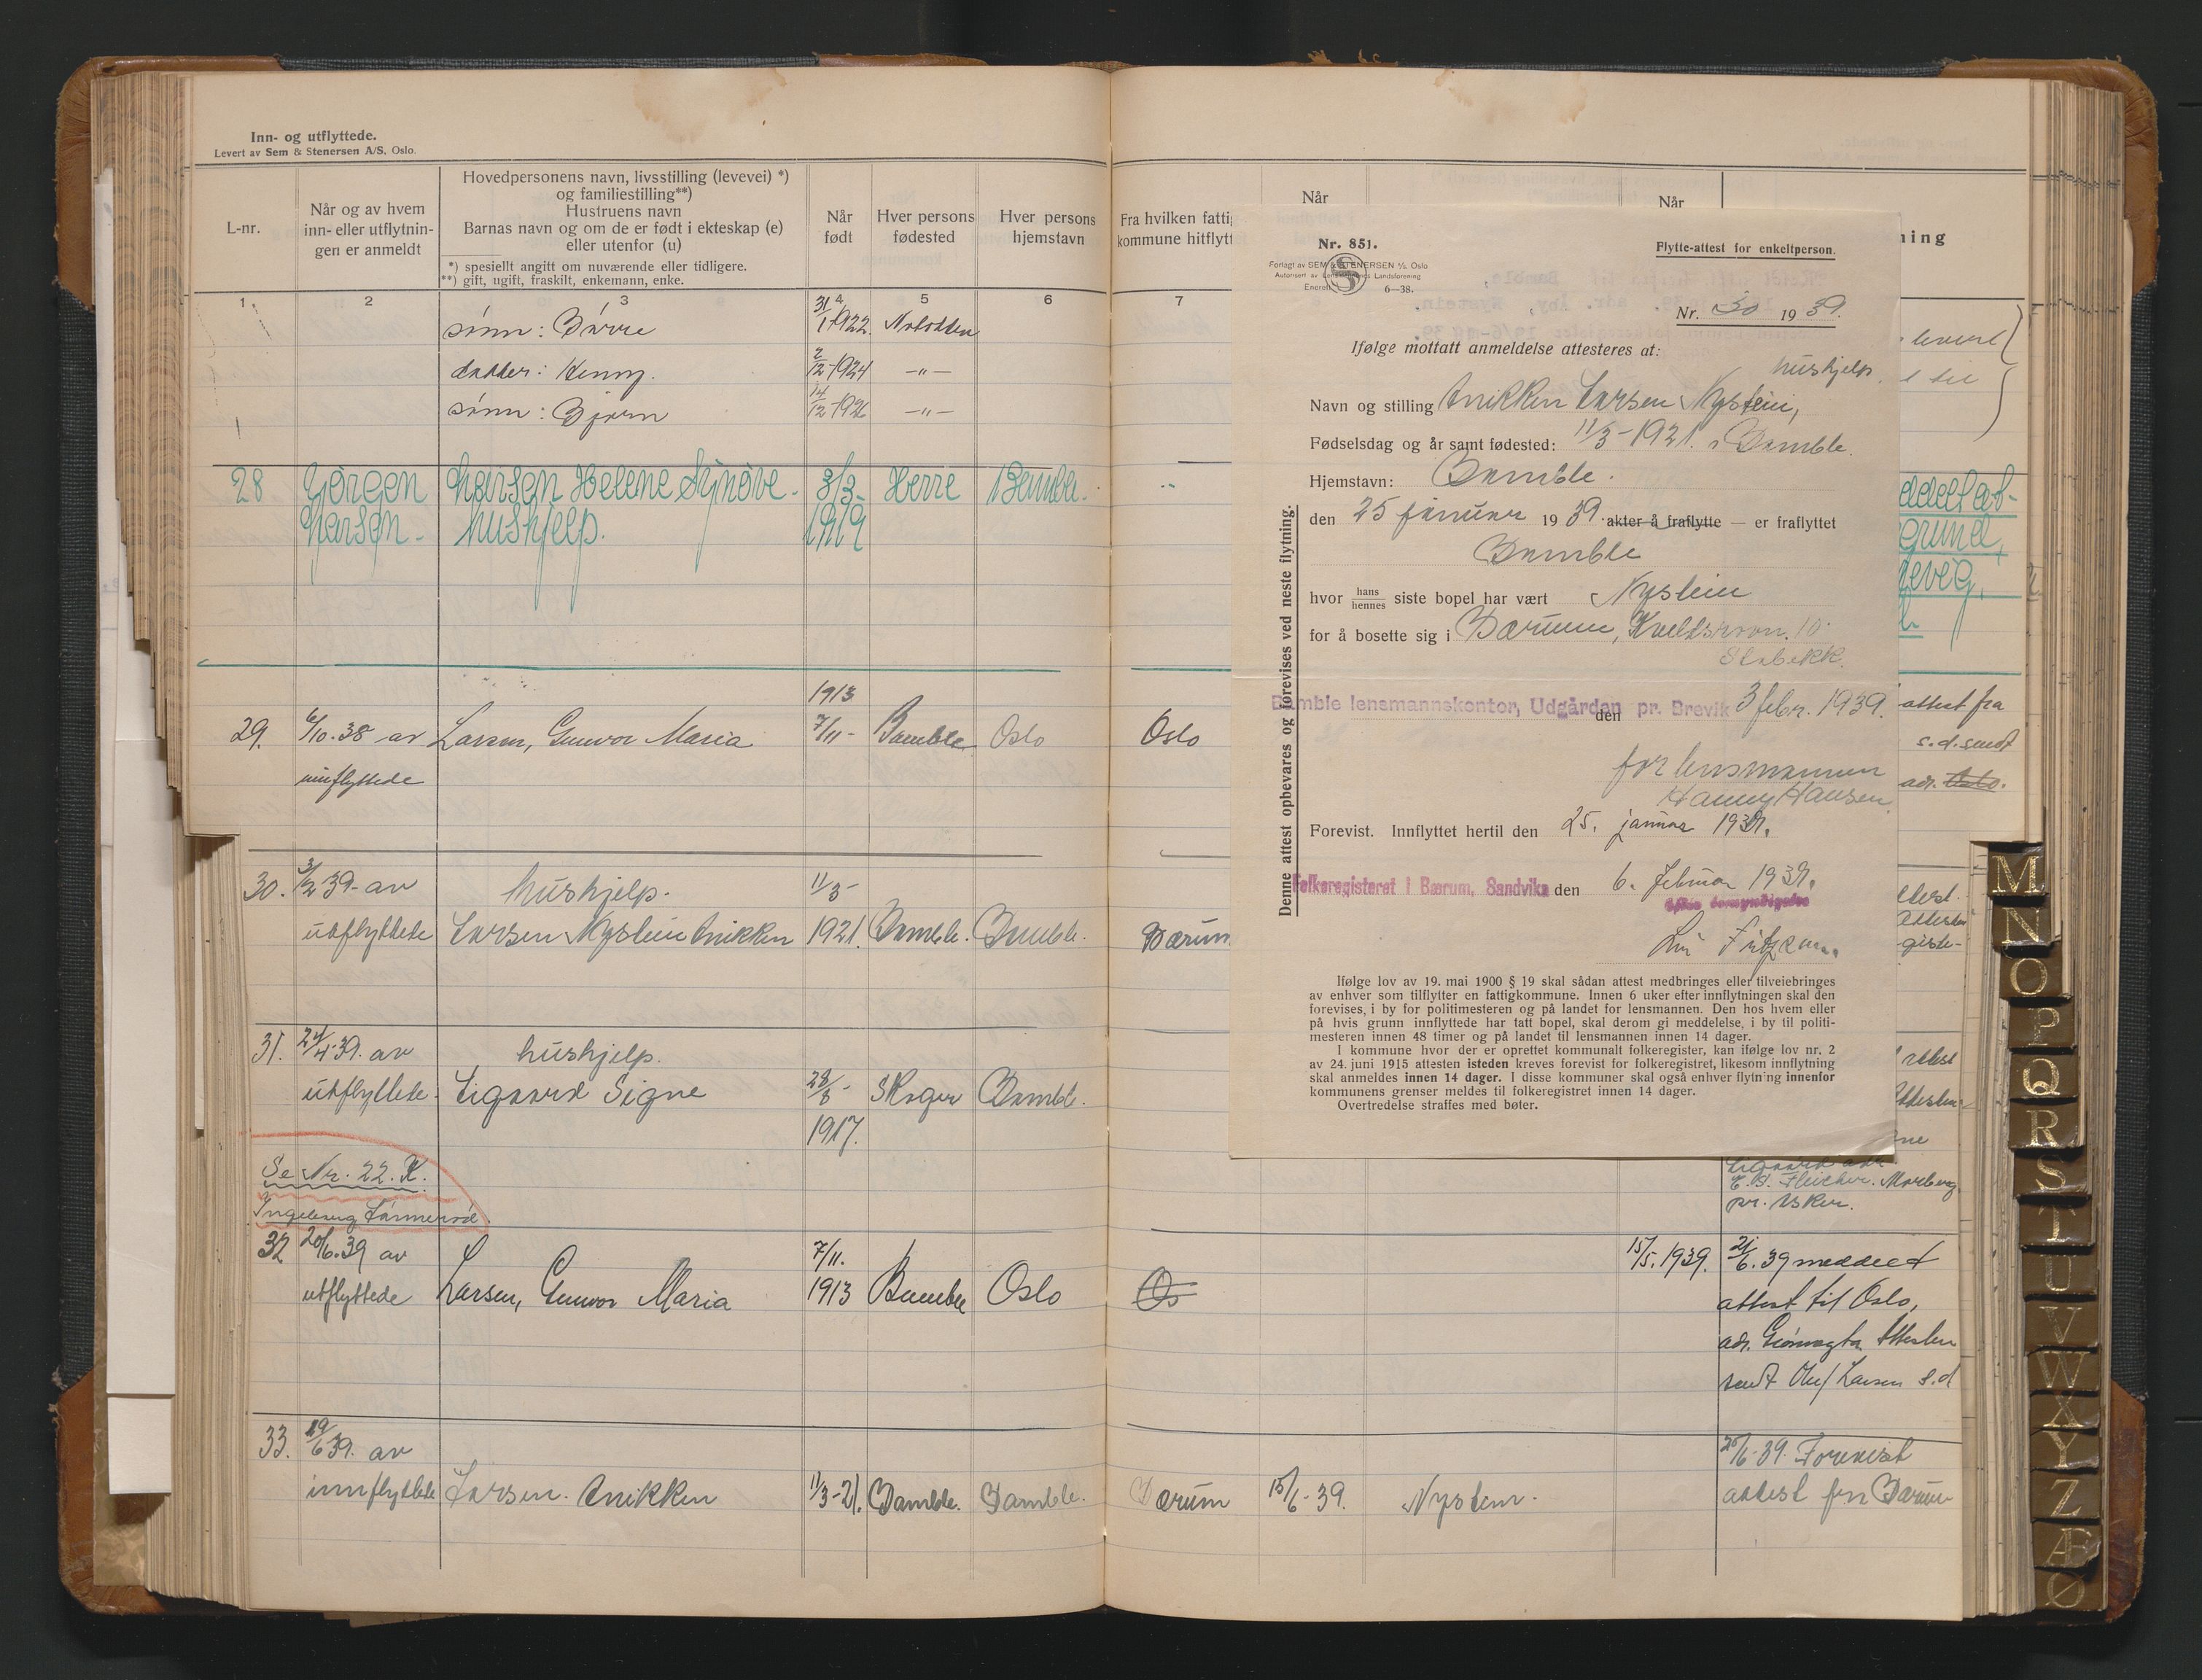 Inn- og utflyttede.
Levert av Sem & Stenersen A/S. Oslo.
L-nr.
Når og av hvem
inn- eller utflytnin-
gen er anmeldt
Hovedpersonens navn, livsstilling (levevei) *)
og familiestilling**)
Hustruens navn
Barnas navn og om de er født i ekteskap (e)
eller utenfor (u)
*) spesiellt angitt om nuværende eller tidligere.
**) gift, ugift, fraskilt, enkemann, enke.
Når
født
Hver persons
fødested
Hver persons
hjemstavn
Fra hvilken fattig
kommune hitflytt
Når
Når
ning
1. 2 3 4 5 6 7
sønn: Børre 31/1-1922. Notodden
datter: Henny. 2/12-1924 —„—
sønn: Bjørn 14/12-1926 —„—
28 Jørgen Larsen Helene Synøve. 3/3- Herre Bamble.
Larsen- hushjelp. 1919
1913
29. 6/10.38 av Larsen, Gunvor Maria 7/11- Bamble Oslo Oslo
innflyttede
attest fra
s.d. sendt
adr.
30. 3/2 39- av hushjelp. 11/3-
utflyttede Larsen Nystein Anikken 1921. Bamble. Bamble. Bærum
31. 24/4-39. av hushjelp.
utflyttede. Ligaard Signe 28/8- Skoger Bamble.
1917.
Se Nr. 22. K.
Ingeborg Lønnerød.
pr. Asker.
32 20/6.39 av 7/11. 15/5.1939. 21/6.39 meddelt
utflyttede Larsen, Gunvor Maria 1913 Bamble Oslo Os attest til Oslo,
sendt Oluf Larsen s.d
33. 19/6 39. av 20/6-39. Forevist
innflyttede Larsen. Anikken 11/3-21. Bamble. Bamble. Bærum 15/6-39. Nystein. attest fra Bærum
Nr. 851.
Forlagt av SEM & STENERSEN A/S. Oslo
Autorisert av Lensmennenes Landsforening
6—38.
Flytte-attest for enkeltperson.
Nr. 30 1939.
Ifølge mottatt anmeldelse attesteres at:
hushjelp.
Navn og stilling Anikken Larsen Nystein,
Fødselsdag og år samt fødested: 11/3-1921. i Bamble.
Hjemstavn: Bamble.
den 25 januar 1939. akter å fraflytte — er fraflyttet
Bamble
hvor hans/hennes siste bopel har vært Nystein
for å bosette sig i Bærum, Kveldsrovn. 10
Stabekk.
Bamble lensmannskontor, Udgården pr. Brevik den 3 febr. 1939.
for lensmannen
Hanny Hansen
Forevist. Innflyttet hertil den 25. januar 1939.
Folkeregisteret i Bærum, Sandvika den 6. februar 1939.
Denne attest opbevares og forevises ved neste flytning.
Ifølge lov av 19. mai 1900 § 19 skal sådan attest medbringes eller tilveiebringes
av enhver som tilflytter en fattigkommune. Innen 6 uker efter innflytningen skal den
forevises, i by for politimesteren og på landet for lensmannen. Den hos hvem eller
på hvis grunn innflyttede har tatt bopel, skal derom gi meddelelse, i by til politi-
mesteren innen 48 timer og på landet til lensmannen innen 14 dager.
I kommune hvor der er oprettet kommunalt folkeregister, kan ifølge lov nr. 2
av 24. juni 1915 attesten isteden kreves forevist for folkeregistret, likesom innflytning
skal anmeldes innen 14 dager. I disse kommuner skal også enhver flytning innenfor
kommunens grenser meldes til folkeregistret innen 14 dager.
Overtredelse straffes med bøter.
M
N
O
P
Q
R
S
T
U
V
W
X
Y
Z
Æ
Ø